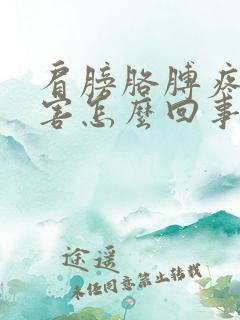 肩膀胳膊疼
害怎麼回事
途遥
未经同意禁止转载